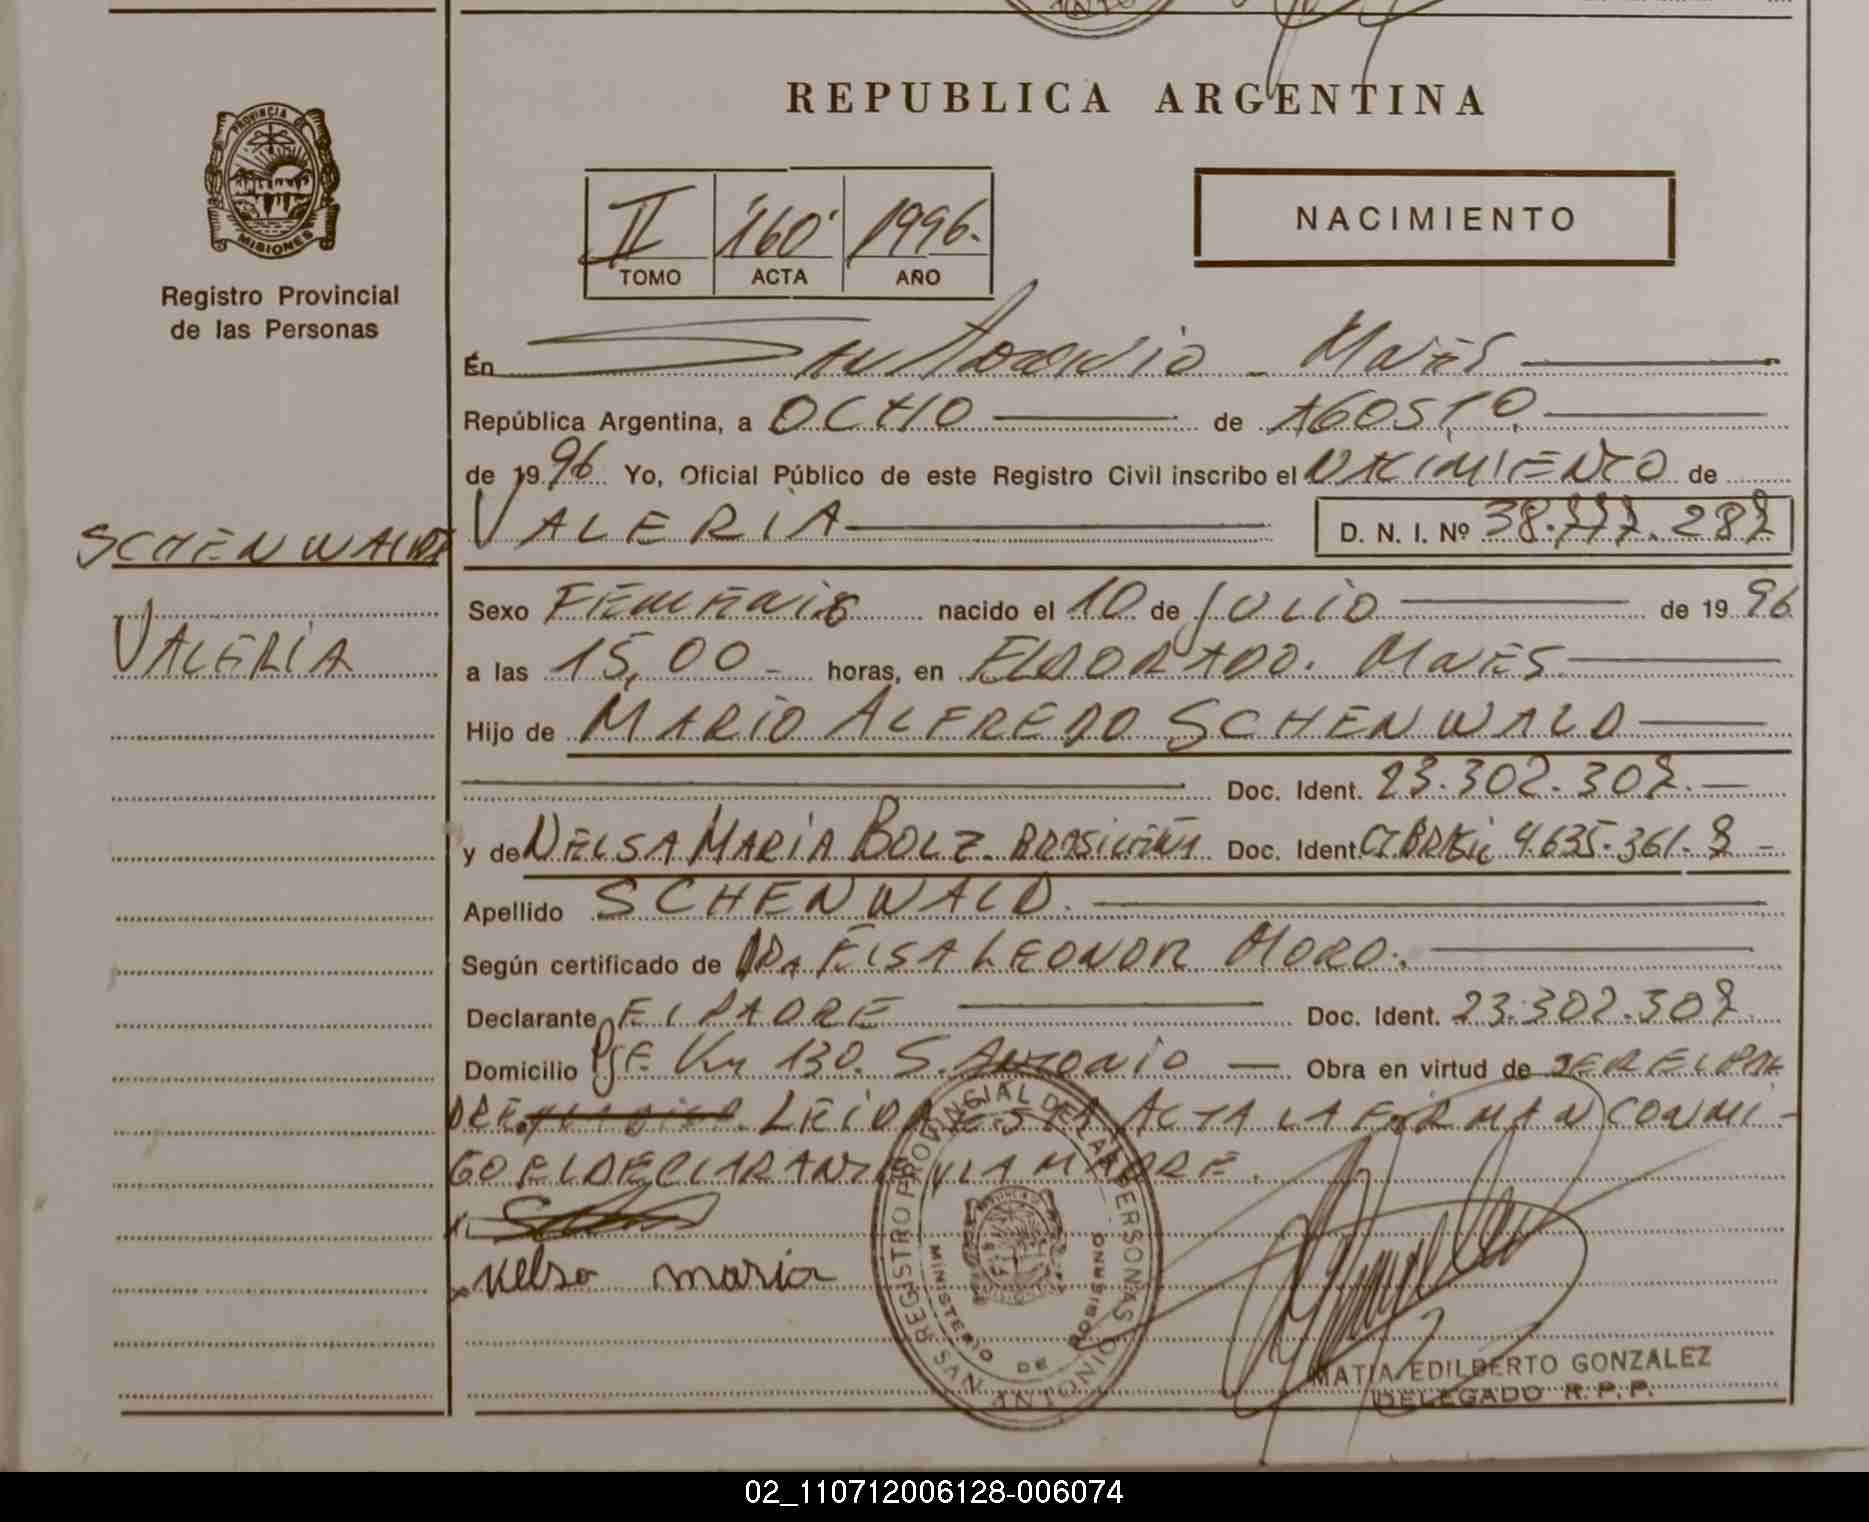 REPUBLICA ARGENTINA
PROVINCIA DE
MISIONES
Registro Provincial
de las Personas
II 160 1996.
TOMO ACTA AÑO
NACIMIENTO
En San Antonio - Mnes
República Argentina, a OCHO de AGOSTO
de 19 96 Yo, Oficial Público de este Registro Civil inscribo el NACIMIENTO de
SCHENWALD
VALERIA D. N. I. Nº 38.777.287
VALERIA
Sexo FEMENINO nacido el 10 de JULIO de 19 96
a las 15,00 - horas, en ELDORADO. MNES
Hijo de MARIO ALFREDO SCHENWALD
Doc. Ident. 23.302.307.-
y de NELSA MARIA BOLZ. BRASILEÑA Doc. Ident. CI BRASIL 4.635.361-8 -
Apellido SCHENWALD.
Según certificado de DRA ELSA LEONOR MORO.
Declarante EL PADRE Doc. Ident. 23.302.307
Domicilio Pje. Km 130. S. ANTONIO — Obra en virtud de SER EL PA
DRE. LEIDA ESTA ACTA LA FIRMAN CONMI-
GO EL DECLARANTE Y LA MADRE.
x nelsa maria
REGISTRO PROVINCIAL DE LAS PERSONAS
MINISTERIO DE GOBIERNO
SAN ANTONIO
MATIA EDILBERTO GONZALEZ
DELEGADO R. P. P.
02_110712006128-006074